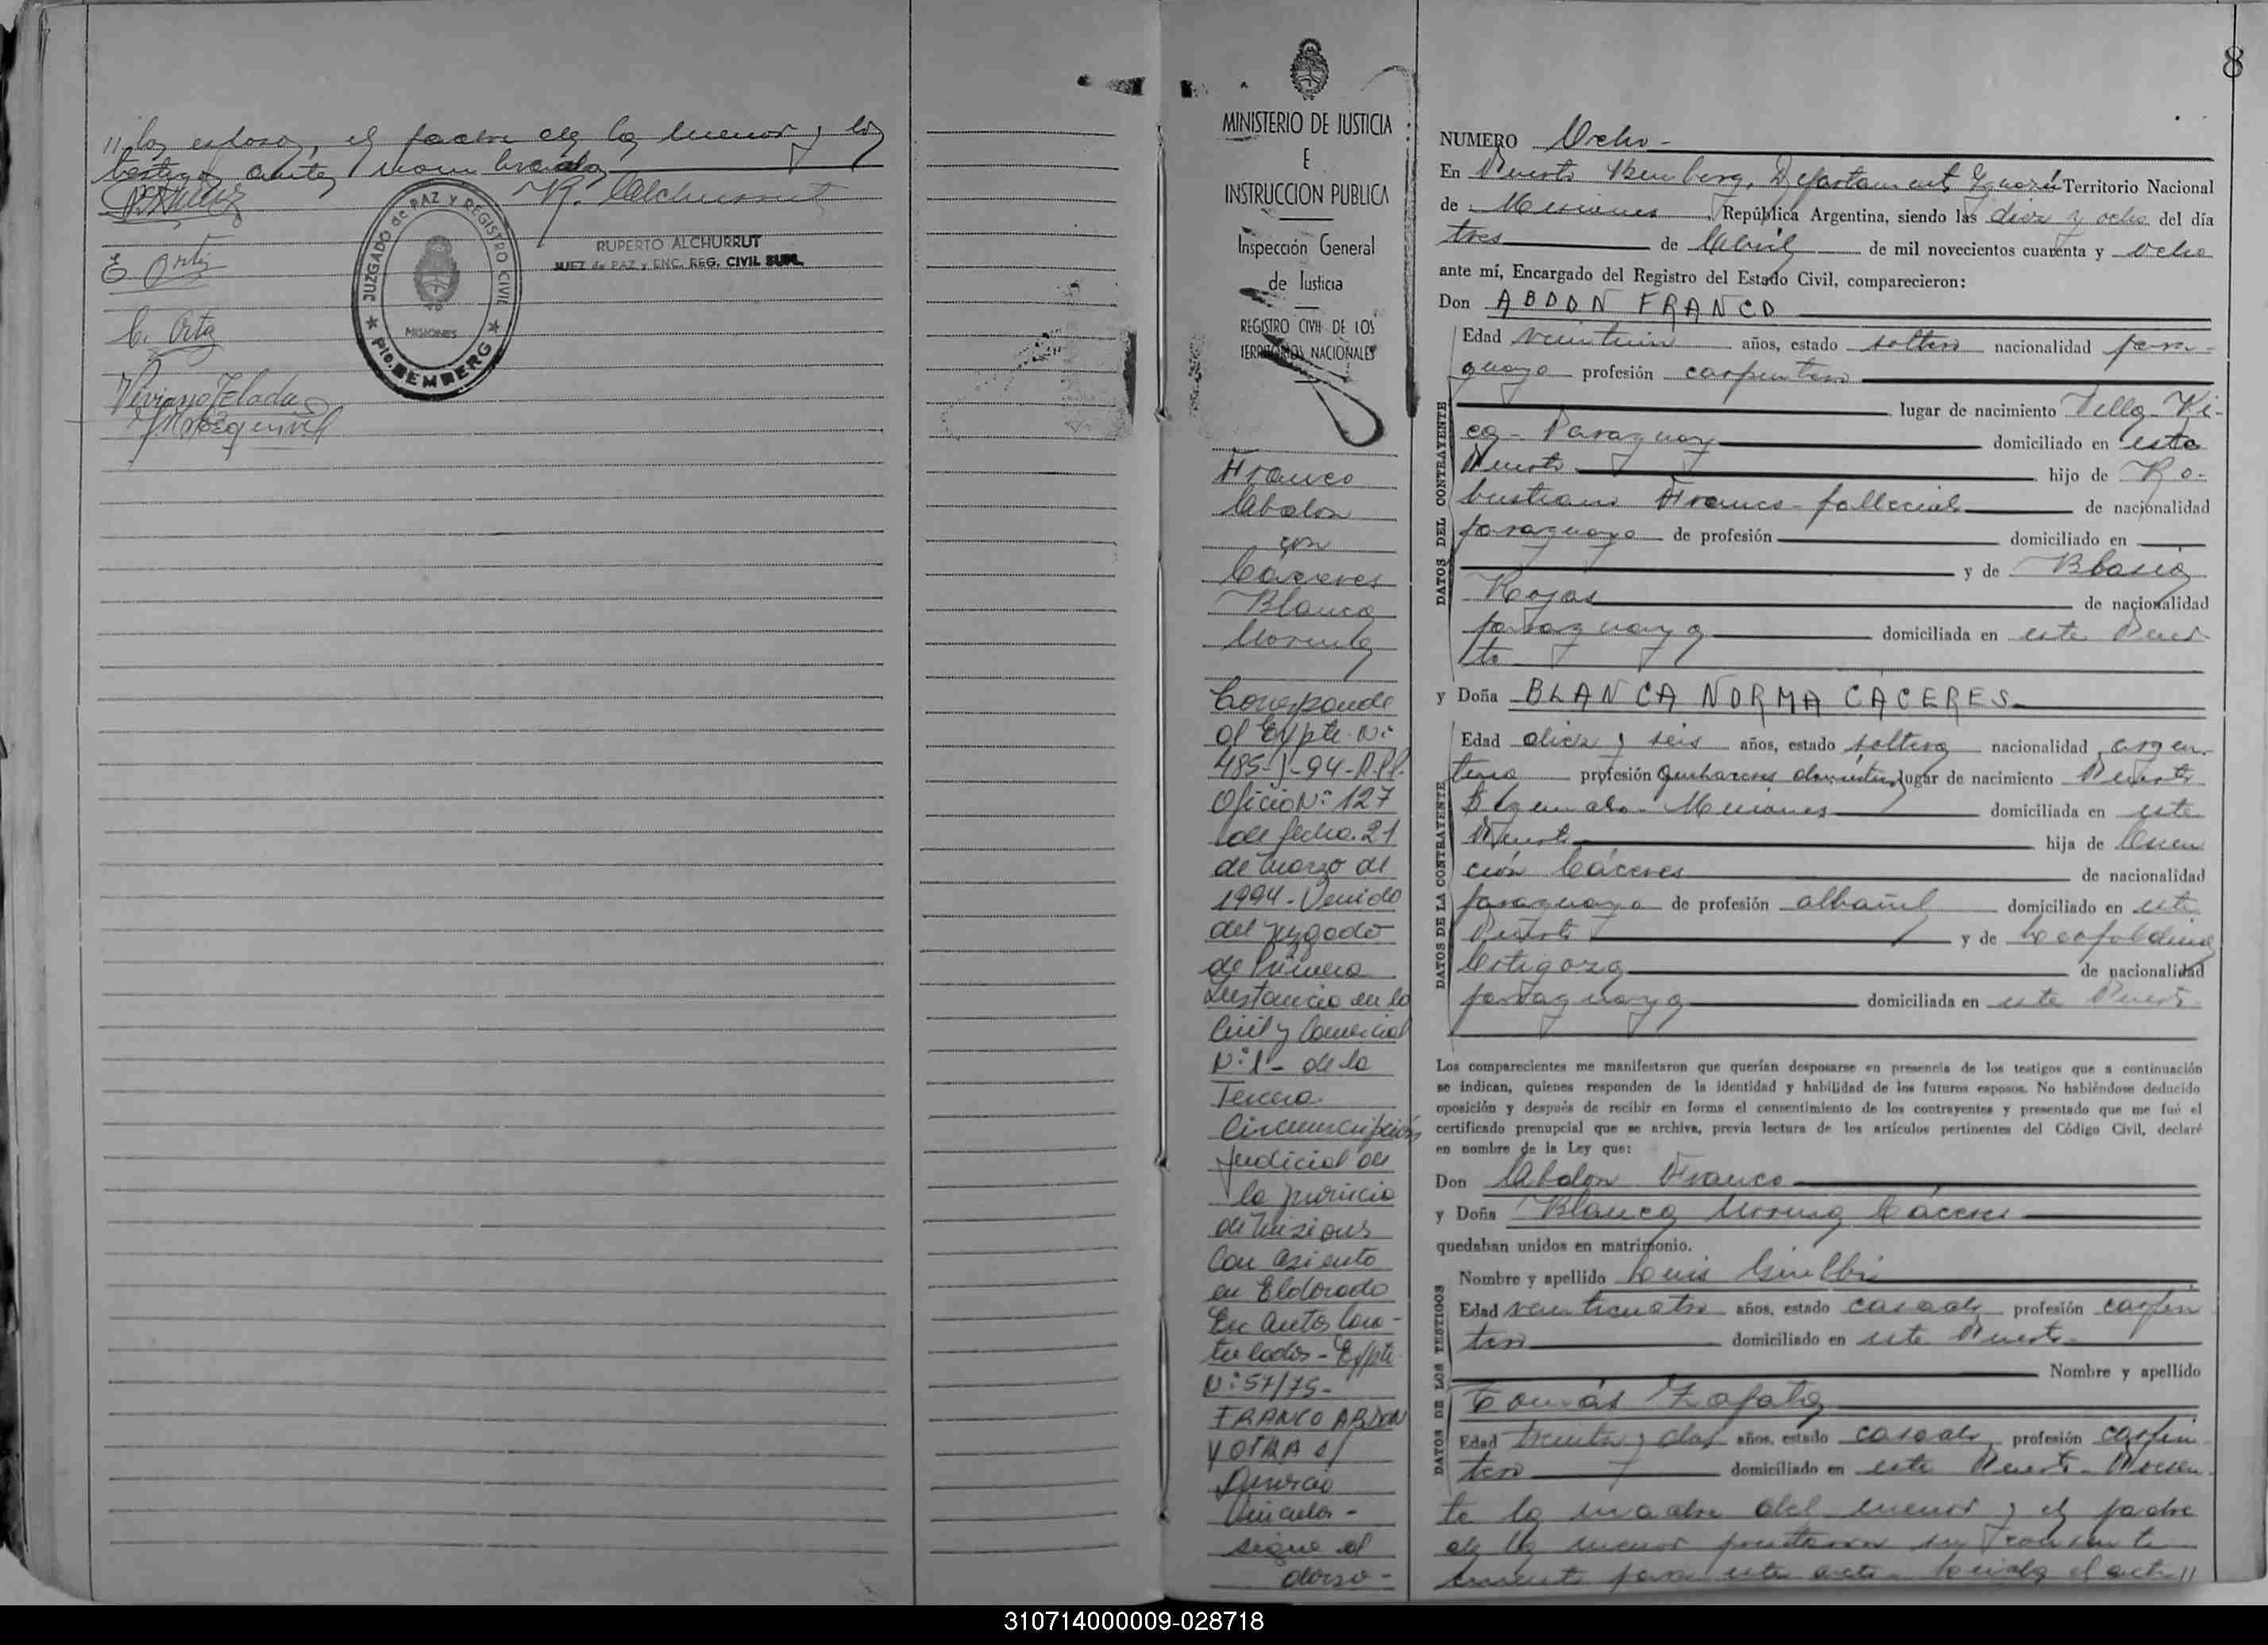 // los esposos, el padre de la menor y los
testigos antes nombrados
R. Alchurrut
RUPERTO ALCHURRUT
JUEZ de PAZ y ENC. REG. CIVIL SUPL.
JUZGADO de PAZ Y REGISTRO CIVIL
MISIONES
★ Pto. BEMBERG ★
E. Ortiz
C. Ortiz
8
MINISTERIO DE JUSTICIA
E
INSTRUCCION PUBLICA
Inspección General
de Justicia
REGISTRO CIVIL DE LOS
TERRITORIOS NACIONALES
Franco
Abdon
con
Cáceres
Blanca
Norma
Corresponde
al Expte. Nº
485-J-94-R.P.P.
Oficio Nº 127
de fecha. 21
de marzo de
1994 - Venido
del juzgado
de Primera
Instancia en lo
Civil y Comercial
Nº 1 - de la
Tercera
Circunscripción
Judicial de
la provincia
de Misiones
Con asiento
en Eldorado
En autos cara-
tulados - Expte
Nº 57/75-
FRANCO ABDON
Y OTRA s/
Divorcio
Vincular -
sigue al
dorso -
NUMERO Ocho -
En Puerto Bemberg, Departamento Iguazú Territorio Nacional
de Misiones, República Argentina, siendo las diez y ocho del día
tres de Abril de mil novecientos cuarenta y ocho
ante mí, Encargado del Registro del Estado Civil, comparecieron:
Don ABDON FRANCO
DATOS DEL CONTRAYENTE
Edad veintiun años, estado soltero nacionalidad para-
guayo profesión carpintero
lugar de nacimiento Villa Ri-
ca - Paraguay domiciliado en este
Puerto hijo de Ro-
bustiano Franco - fallecido de nacionalidad
paraguayo de profesión domiciliado en
y de Blasia
Rojas de nacionalidad
paraguaya domiciliada en este Puer-
to
y Doña BLANCA NORMA CACERES
DATOS DE LA CONTRAYENTE
Edad diez y seis años, estado soltera nacionalidad argen-
tina profesión Quehaceres domésticos lugar de nacimiento Puerto
Segundo - Misiones domiciliada en este
Puerto hija de Asen
ción Cáceres de nacionalidad
paraguayo de profesión albañil domiciliado en este
Puerto y de Leopoldina
Ortigoza de nacionalidad
paraguaya domiciliada en este Puerto
Los comparecientes me manifestaron que querían desposarse en presencia de los testigos que a continuación
se indican, quienes responden de la identidad y habilidad de los futuros esposos. No habiéndose deducido
oposición y después de recibir en forma el consentimiento de los contrayentes y presentado que me fué el
certificado prenupcial que se archiva, previa lectura de los artículos pertinentes del Código Civil, declaré
en nombre de la Ley que:
Don Abdon Franco
y Doña Blanca Norma Cáceres
quedaban unidos en matrimonio.
DATOS DE LOS TESTIGOS
Nombre y apellido Luis
Edad veinticuatro años, estado casado profesión carpin
tero domiciliado en este Puerto
Nombre y apellido
Tomás Zapata
Edad treinta y dos años, estado casado profesión carpin
tero domiciliado en este Puerto - Presen
te la madre del menor y el padre
de la menor prestaron su consenti
miento para este acto - Leida el acta //
310714000009-028718